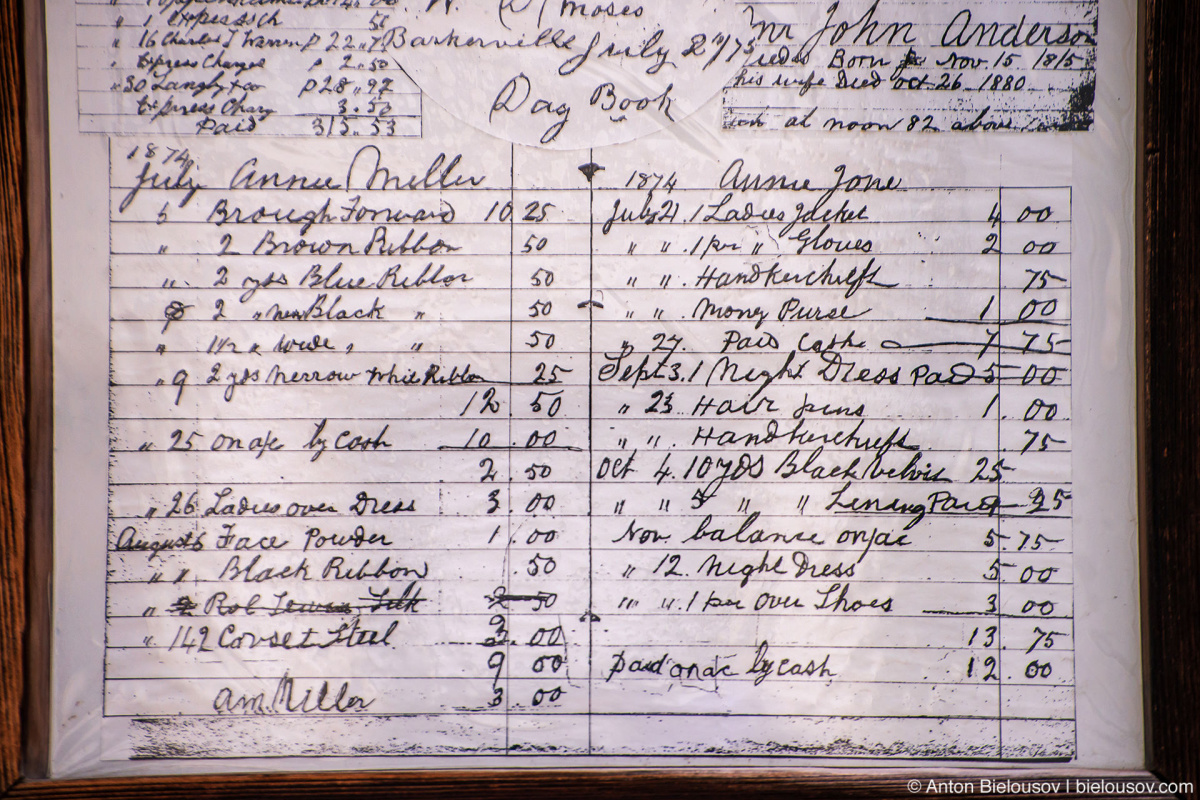 1 Express Ch 50
" 16 Charles T Warren P 22.75
" Express Charges P 2.50
" 30 Langly & co P 28.,97
Express Charg 3.50
Paid 315.53
W. D. Moses
Barkerville July 27/75
Day Book
Mr John Anderson
Born Nov. 15. 1815
his wife Died oct 26. 1880
at noon 82 above
1874
July Annie Miller
5 Brough Forward 10 25
" 2 Brown Ribbon 50
" 2 yds Blue Ribbon 50
8 2 " Black " 50
" 1 1/2 " wide " " 50
" 9 2 yds Nerrow White Ribbon 25
12 . 50
" 25 on a/c by Cash 10 . 00
2 . 50
" 26 Ladies over Dress 3 . 00
August 6 Face Powder 1 . 00
" " Black Ribbon . 50
" Silk 2 50
" 14 2 Corset Steel 2 . 00
9 00
Am. Miller 3 00
1874 Annie Jone
July 21 . 1 Ladies Jacket 4 00
" " . 1 pr " Gloves 2 00
" " . Handkerchiefs 75
" " . Mony Purse 1 00
" 27. Paid Cash 7 75
Sept 3. 1 Night Dress Paid 5 00
" 23 Hair pins 1 . 00
" " . Handkerchiefs 75
Oct 4. 10 yds Black Velvis 25
" " 5 " " Lening Paid 25
Nov. balance on/ac 5.75
" 12. Night Dress 5 00
" " . 1 per Over Shoes 3 00
13 . 75
Paid on ac by Cash 12 . 00
© Anton Bielousov | bielousov.com